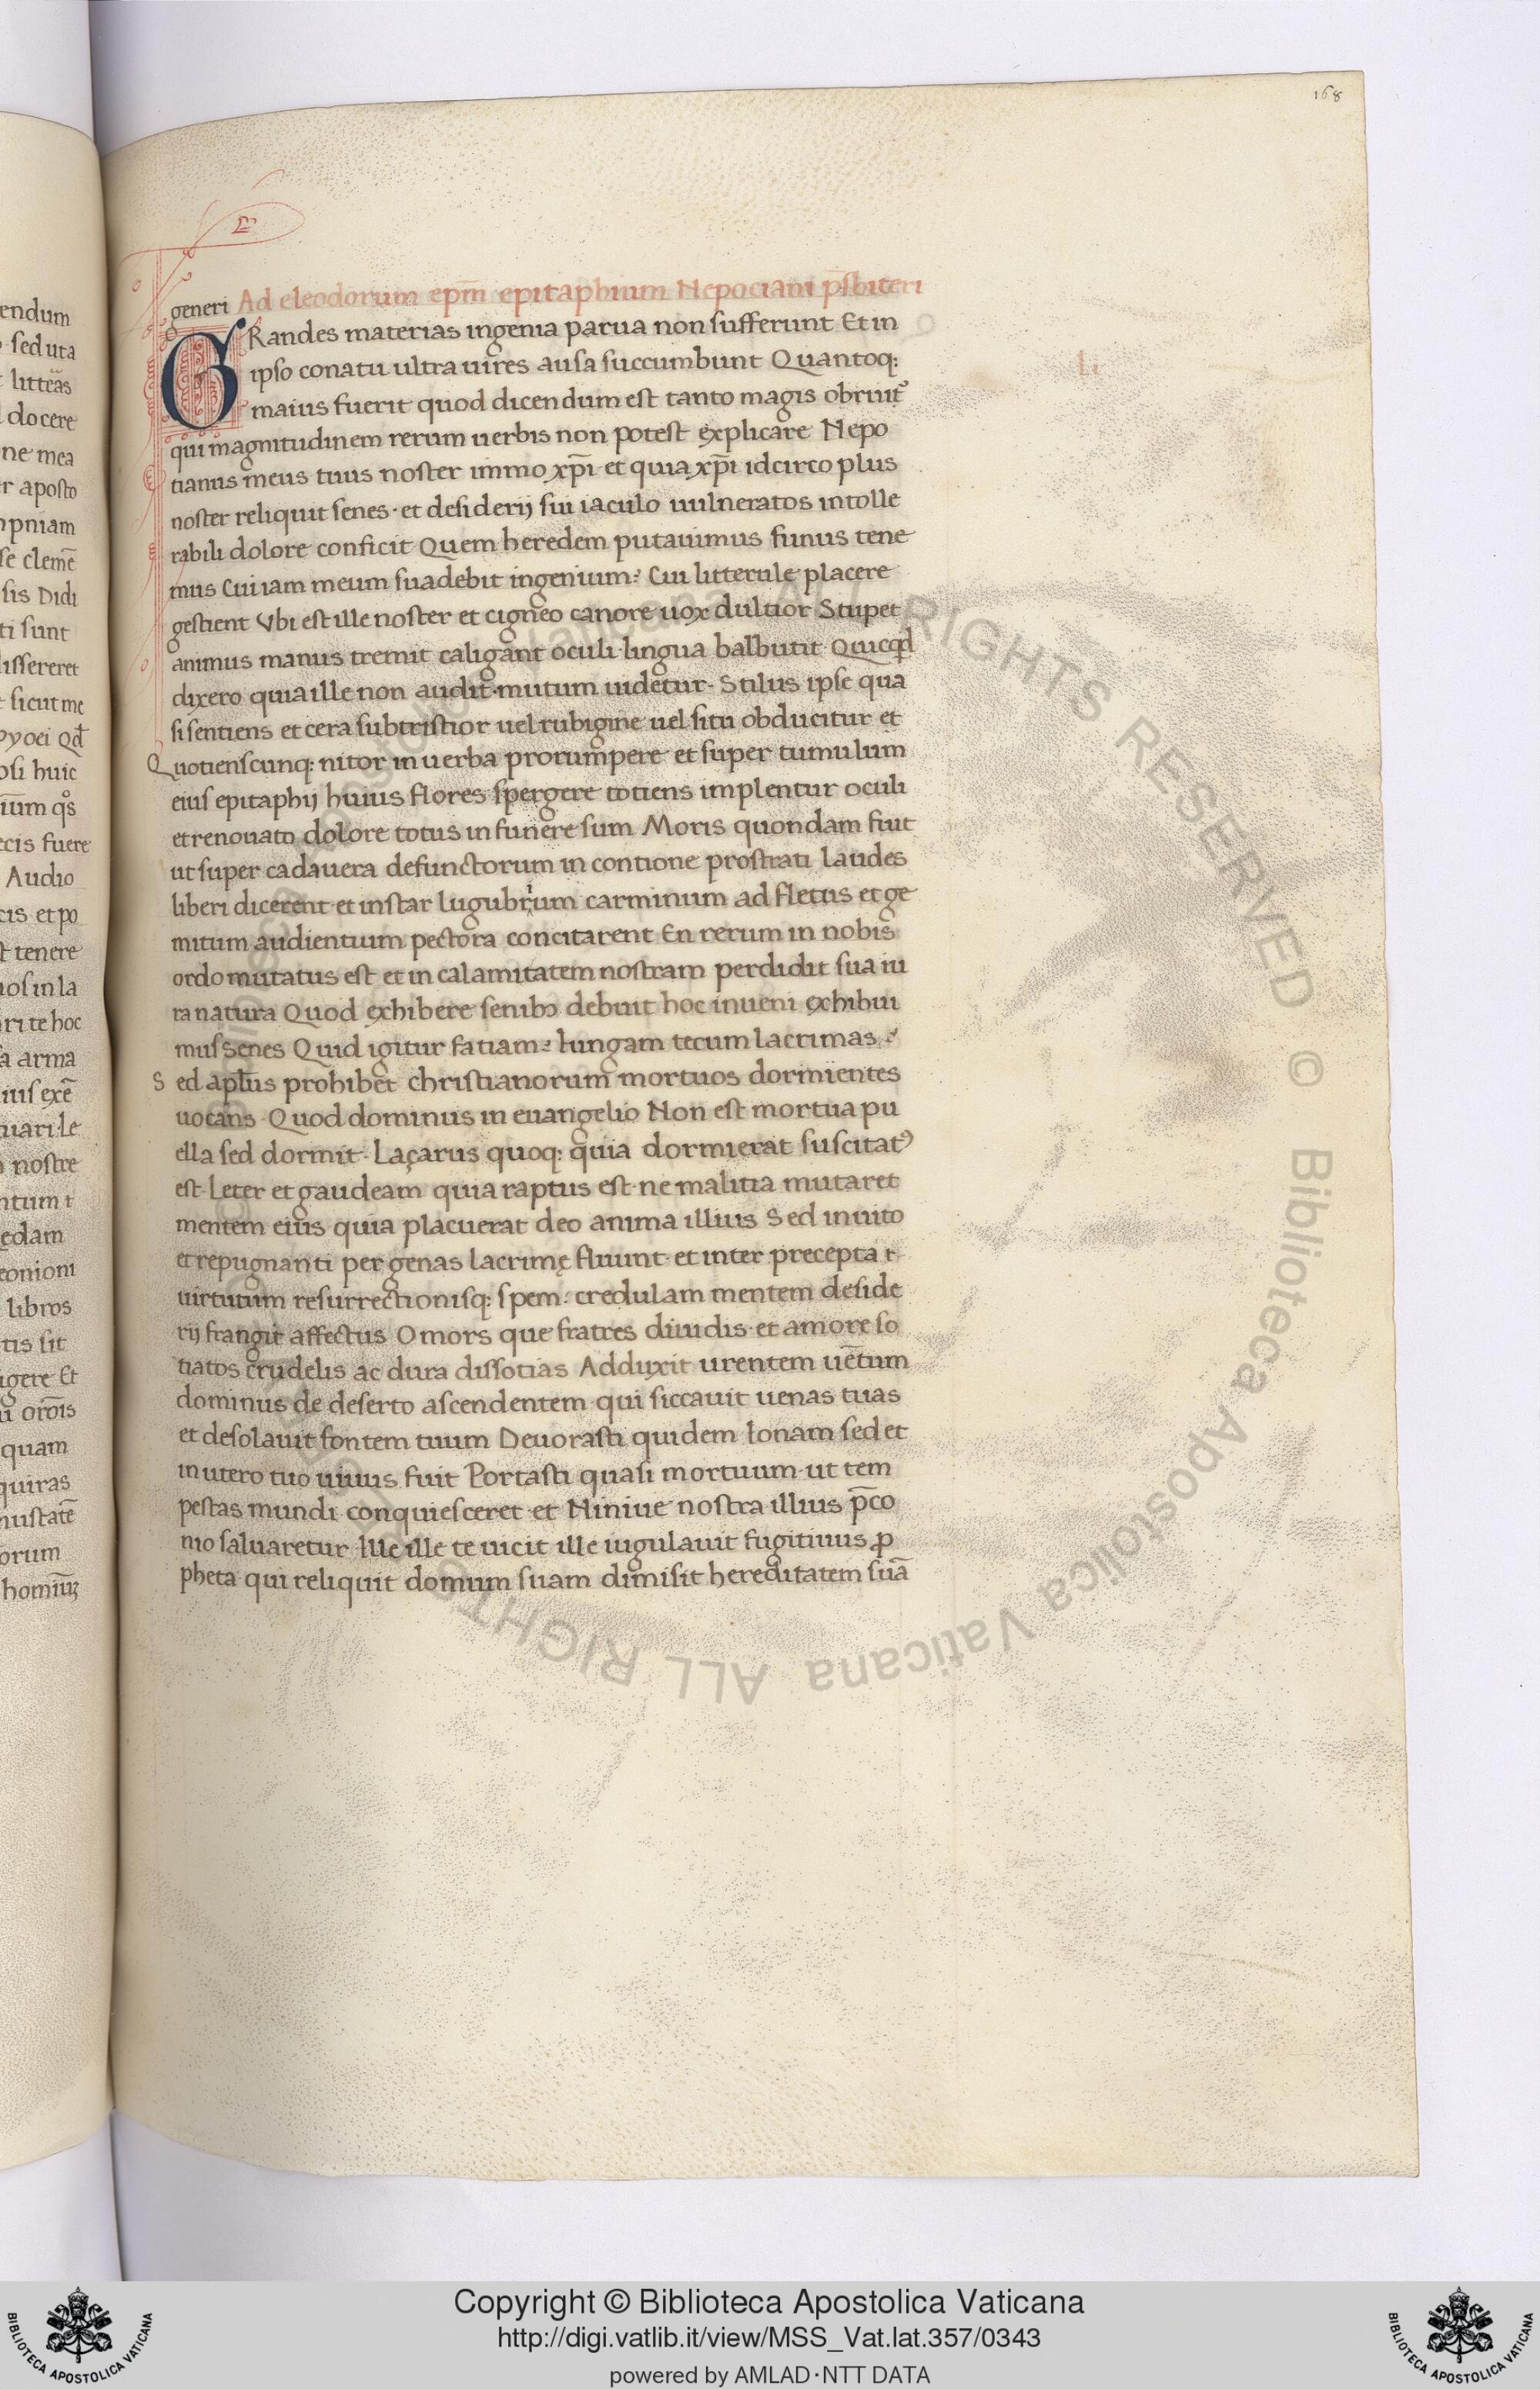 168
generi Ad eleodorum ep̄m epitaphium Nepociani p̄sbiteri
GRandes materias ingenia parua non sufferunt Et in
ipso conatu ultra uires ausa succumbunt Quantoq:
maius fuerit quod dicendum est tanto magis obruit᷒
qui magnitudinem rerum uerbis non potest explicare Nepo
tianus meus tuus noster immo xp̄i et quia xp̄i idcirco plus
noster reliquit senes · et desiderij sui iaculo uulneratos intolle
rabili dolore conficit Quem heredem putauimus funus tene
mus Cui iam meum suadebit ingenium? Cui litterule placere
gestient Vbi est ille noster et cigneo canore uox dultior Stupet
animus manus tremit caligant oculi · lingua balbutit · Quicq̄d
dixero quia ille non audit · mutum uidetur · Stilus ipse qua
si sentiens et cera subtristior uel rubigine uel situ obducitur et
Quotienscunq: nitor in uerba prorumpere et super tumulum
eius epitaphij huius flores spergere totiens implentur oculi
et renouato dolore totus in funere sum Moris quondam fuit
ut super cadauera defunctorum in contione prostrati laudes
liberi dicerent et instar lugubrium carminum ad fletus et ge
mitum audientium pectora concitarent En rerum in nobis
ordo mutatus est et in calamitatem nostram perdidit sua iu
ra natura Quod exhibere senibꝫ debuit hoc inueni exhibui
mus senes Quid igitur fatiam? Iungam tecum lacrimas ?
Sed apl̄us prohibet christianorum mortuos dormientes
uocans · Quod dominus in euangelio Non est mortua pu
ella sed dormit · Laçarus quoq: quia dormierat suscitat᷒
est · Leter et gaudeam quia raptus est · ne malitia mutaret
mentem eius quia placuerat deo anima illius Sed inuito
et repugnanti per genas lacrimę fluunt · et inter precepta
uirtutum resurrectionisq: spem · credulam mentem deside
rij frangit affectus O mors que fratres diuidis · et amore so
tiatos crudelis ac dura dissotias Adduxit urentem uētum
dominus de deserto ascendentem qui siccauit uenas tuas
et desolauit fontem tuum Deuorasti quidem Ionam sed et
in utero tuo uiuus fuit Portasti quasi mortuum · ut tem
pestas mundi conquiesceret · et Niniue nostra illius p̄co
nio saluaretur Ille ille te uicit ille iugulauit fugitiuus ꝓ
pheta qui reliquit domum suam dimisit hereditatem suā
endum
sed uta
litteras
docere
ne mea
r aposto
mpniam
se clemē
sis Didi
ti sunt
dissereret
sicut me
osi huic
ecis fuere
Audio
cis et po
tenere
nos in la
ri te hoc
arma
uari · Le
nostre
libros
tis sit
igere Et
quam
quiras
nustatē
orum
ALL RIGHTS RESERVED © Biblioteca Apostolica Vaticana ALL RIGHTS
Copyright © Biblioteca Apostolica Vaticana
http://digi.vatlib.it/view/MSS_Vat.lat.357/0343
powered by AMLAD·NTT DATA
BIBLIOTECA APOSTOLICA VATICANA
BIBLIOTECA APOSTOLICA VATICANA